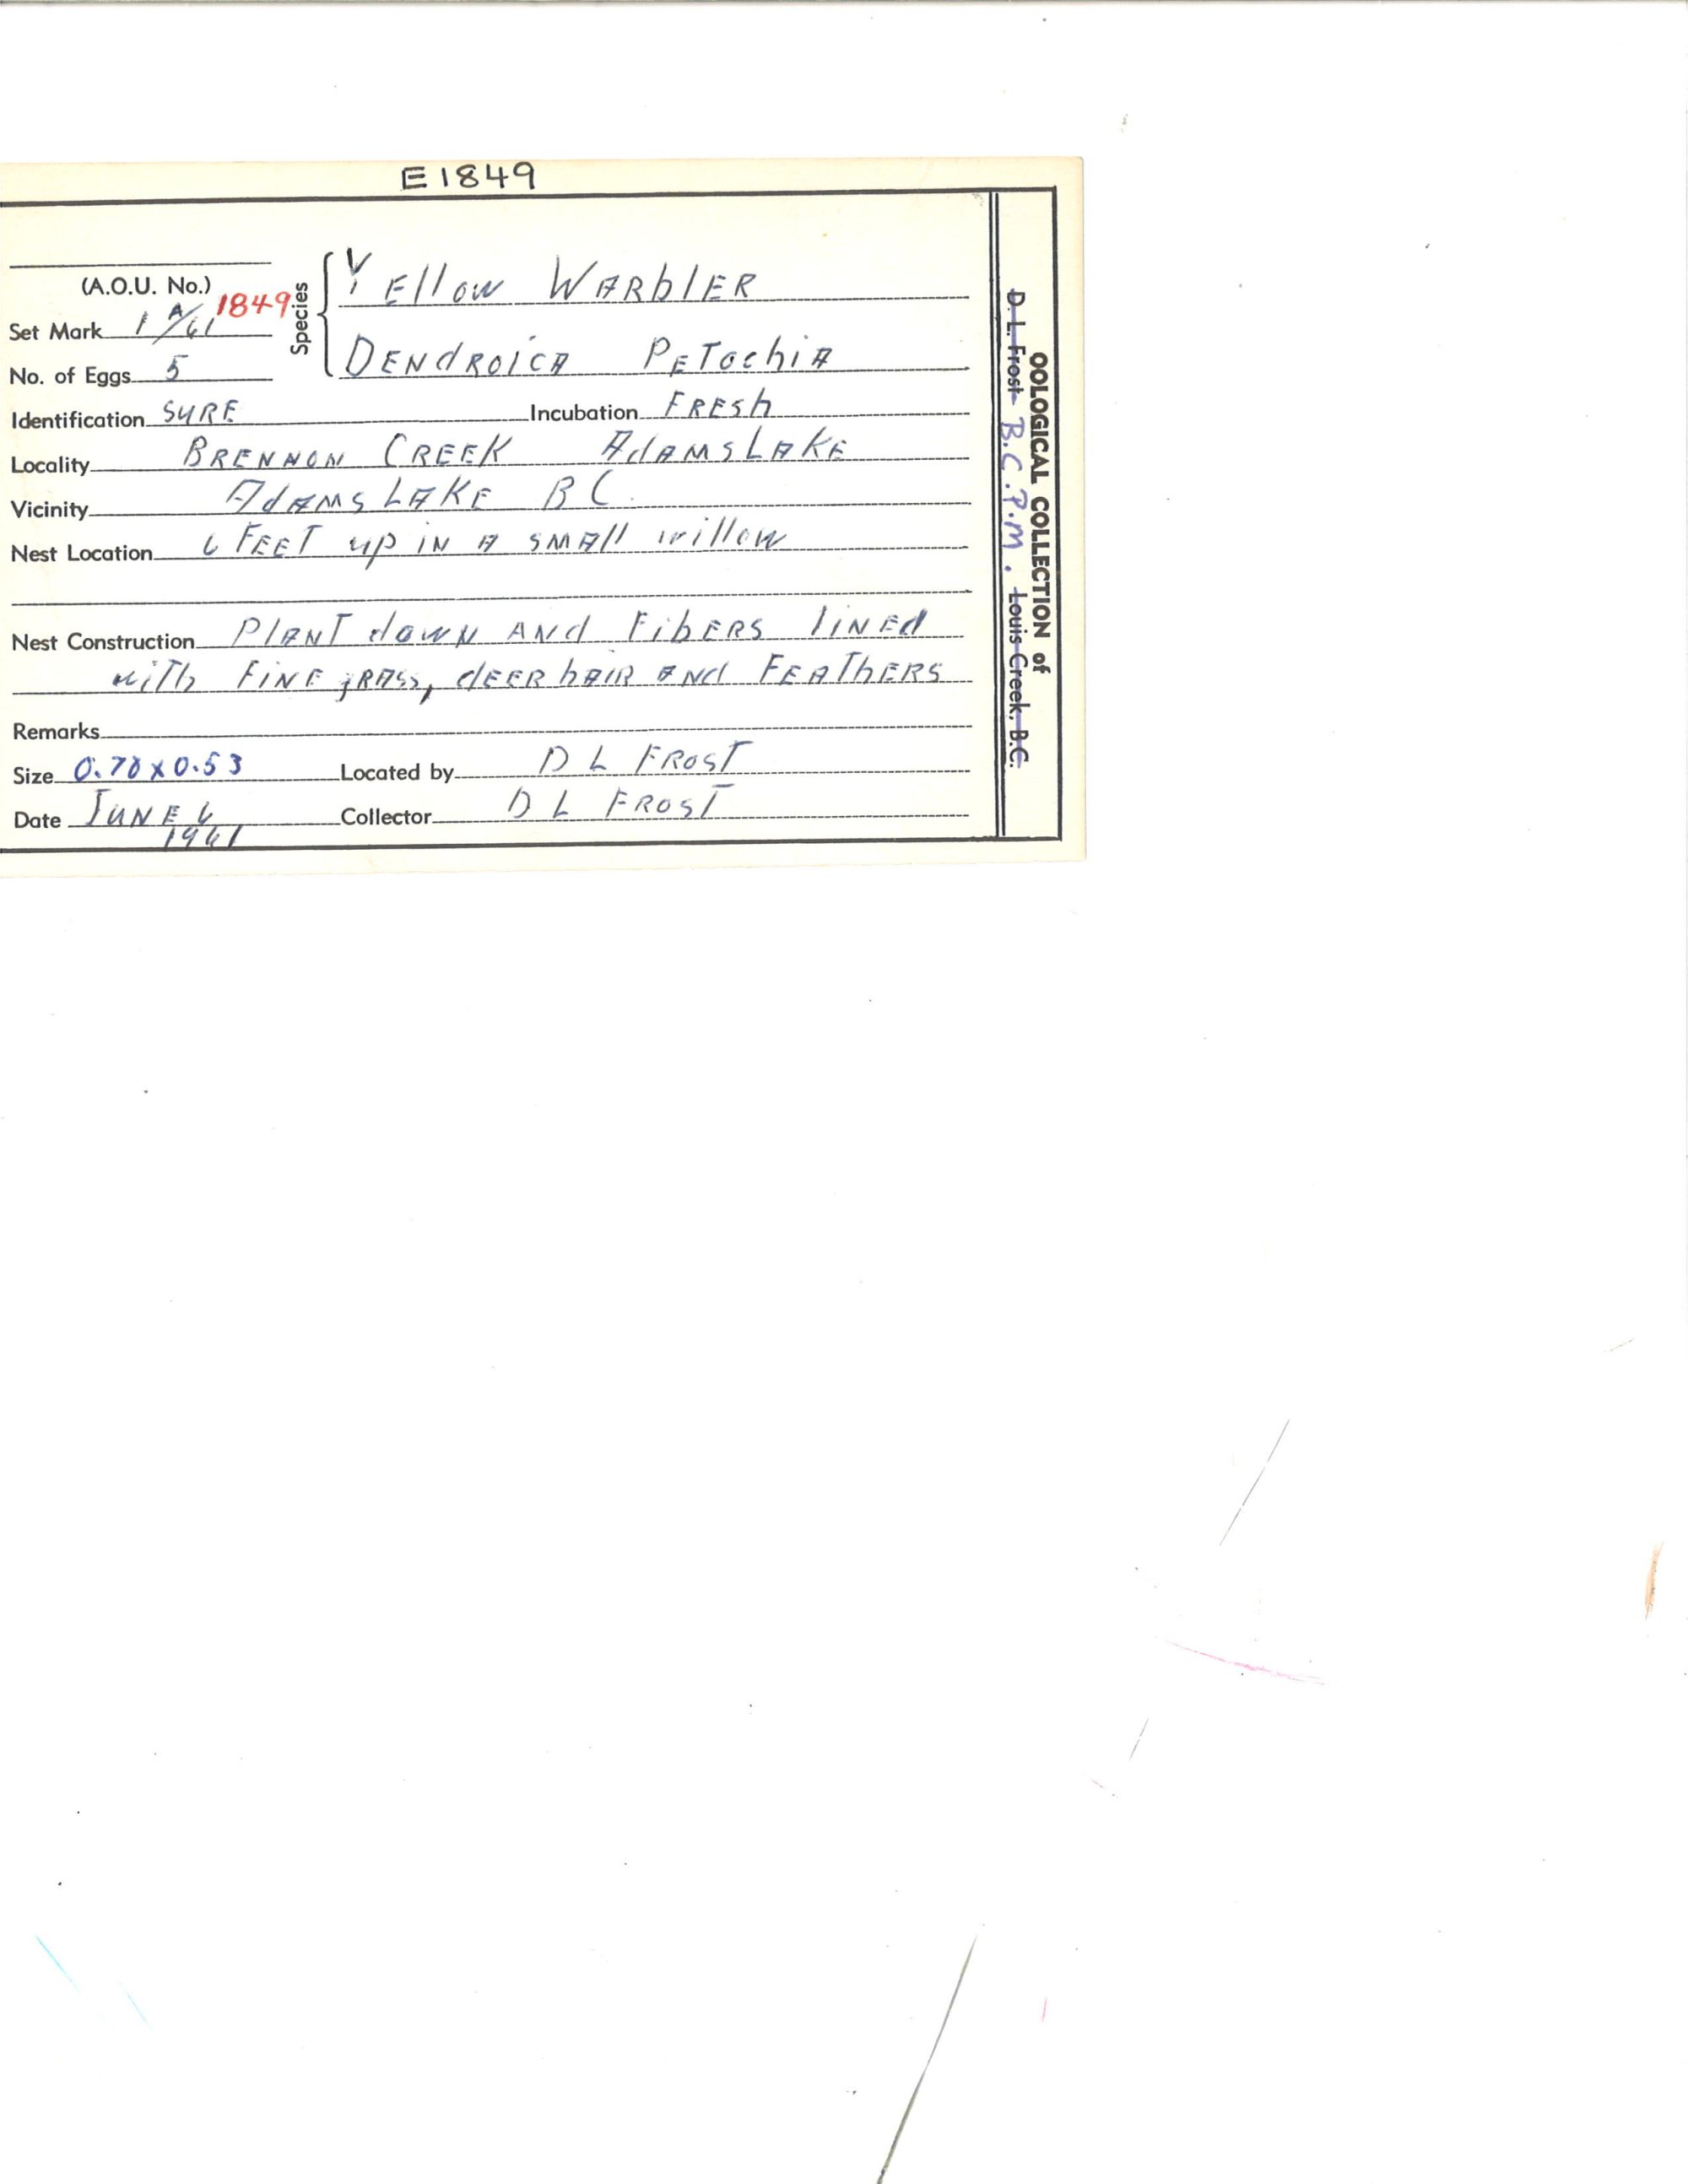 E1849
(A.O.U. No.)
1849
Set Mark 1 A/61
No. of Eggs 5
Species
Yellow Warbler
Dendroica Petochia
Identification Sure Incubation Fresh
Locality Brennon Creek Adams Lake
Vicinity Adams Lake B C.
Nest Location 6 Feet up in a small willow
Nest Construction Plant down and Fibers lined
with Fine grass, deer hair and Feathers
Remarks
Size 0.70 x 0.53 Located by D L Frost
Date June 6 Collector D L Frost
1961
OOLOGICAL COLLECTION of
D. L. Frost B.C.P.M. Louis Creek, B.C.